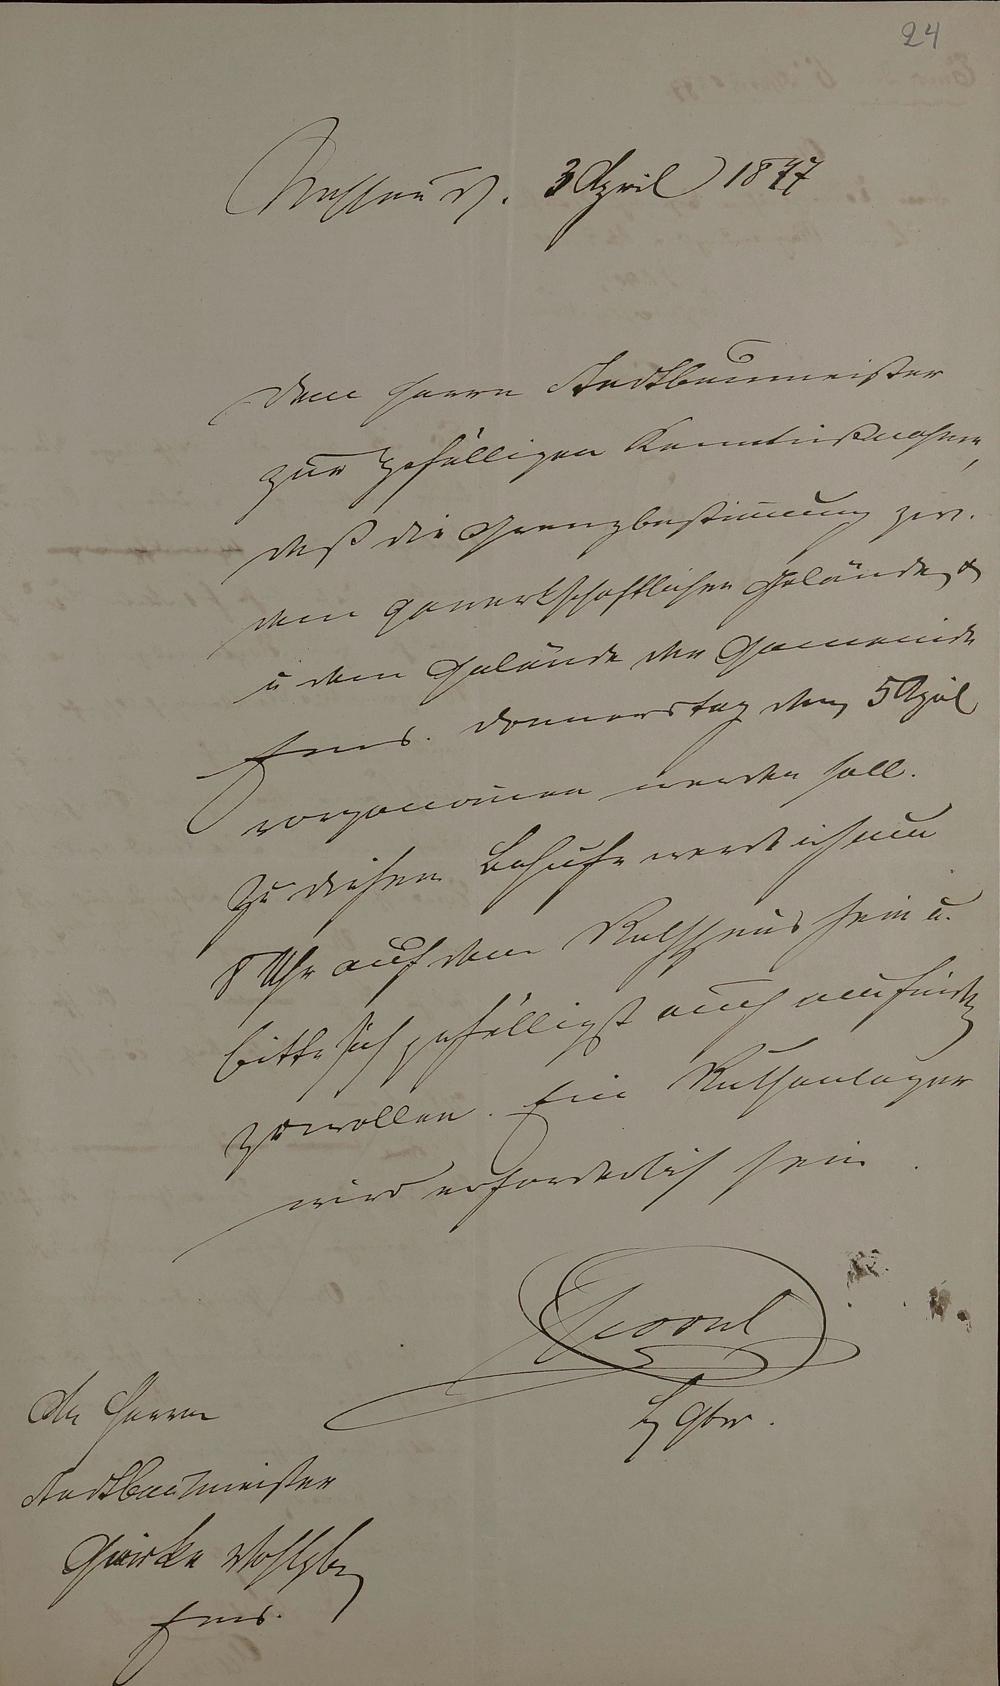 24
Nassau d. 3 April 1877
Dem Herrn Stadtbaumeister
zur gefälligen Kenntnißnahme,
daß die Grenzbestimmung zw.
dem gewerkschaftlichen Gelände
u dem Gelände der Gemeinde
Ems. Donnerstag den 5 April
vorgenomen werden soll.
Zu diesem Behufe werde ich um
8 Uhr auf dem Rathhaus sein u.
bitte sich gefälligst auch einfinden
zu wollen. Ein Ruthenleger
wird erforderlich sein
An Herrn
Stadtbaumeister
Wohlgb
Ems.